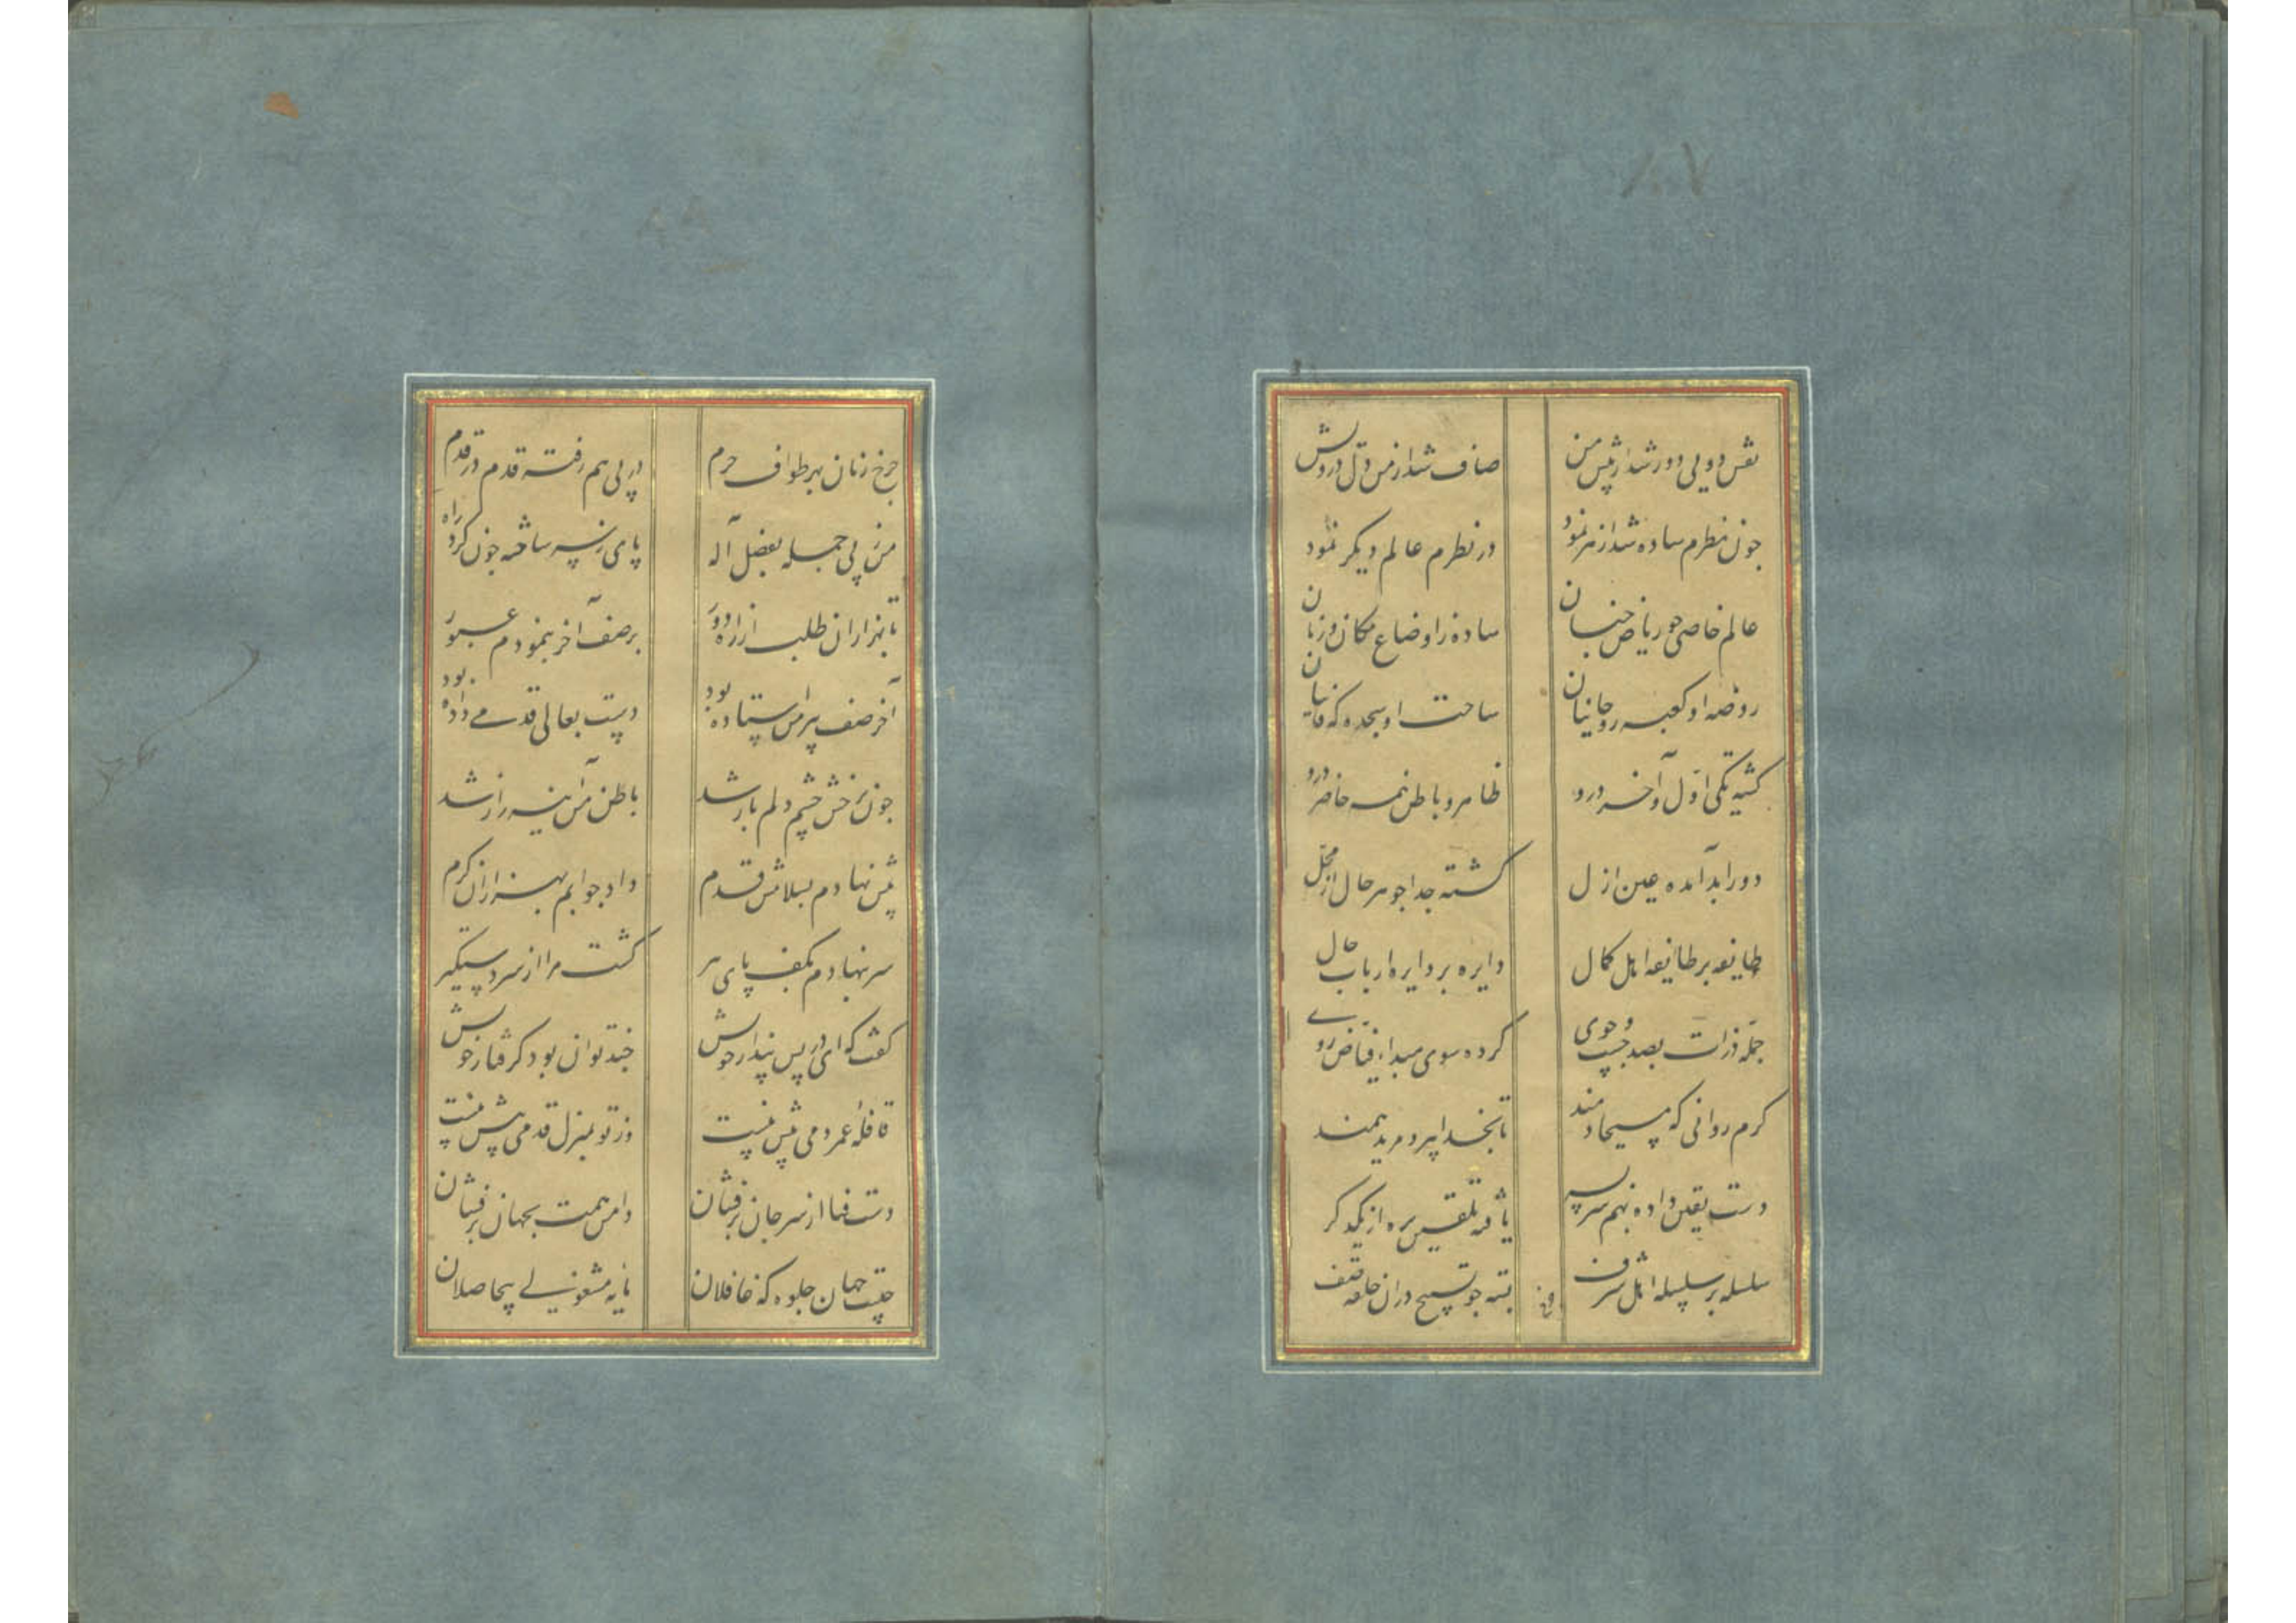 ۱۰۷
نقش دویی دور شد از پیش من صاف شد از من دل درویش
چون نظرم ساده شد از هر نمود در نظرم عالم دیگر نمود
عالم خاصی چو ریاض جنان ساده ز اوضاع مکان و زمان
روضه او کعبه روحانیان ساحت او سجده که فانیان
کشته یکی اول و آخر درو ظاهر و باطن همه حاضر درو
دور ابد آمده عین ازل کشته جدا جوهر حال از محل
طایفه بر طایفه اهل کمال دایره بر دایره ارباب حال
جمله ذرات بصد جست و جوی کرده سوی مبداء فیاض روے
کرم روانی که مسیحا دمند تا بخدا پیر و مرید همند
دست یقین داده بهم سر بسر یافته تلقین ره از یکدکر
سلسله بر سلسله اهل شرف بسته چو تسبیح در آن حلقه صف
چرخ
چرخ زنان بهر طواف حرم در پی هم رفته قدم در قدم
من ز پی جمله بفضل آله پای ز سر ساخته چون کرد راه
با هزاران طلب از راه دور بر صف آخر بنمودم عبور
آخر صف پیر من استاده بود دست بعالی قدمے داده بود
چون برخش چشم دلم باز شد باطن من آینه راز شد
پیش نهادم بسلامش قدم داد جوابم بهزاران کرم
سر بنهادم بکف پای پیر کشت مرا از سر دستکیر
کفت که ای در پس پندار خویش چند توان بود کرفتار خویش
قافله عمر دمی بیش نیست وز تو بمنزل قدمی پیش نیست
دست فنا از سر جان برفشان دامن همت بجهان برفشان
چیست جهان جلوه که غافلان مایه مشغولے بیحاصلان